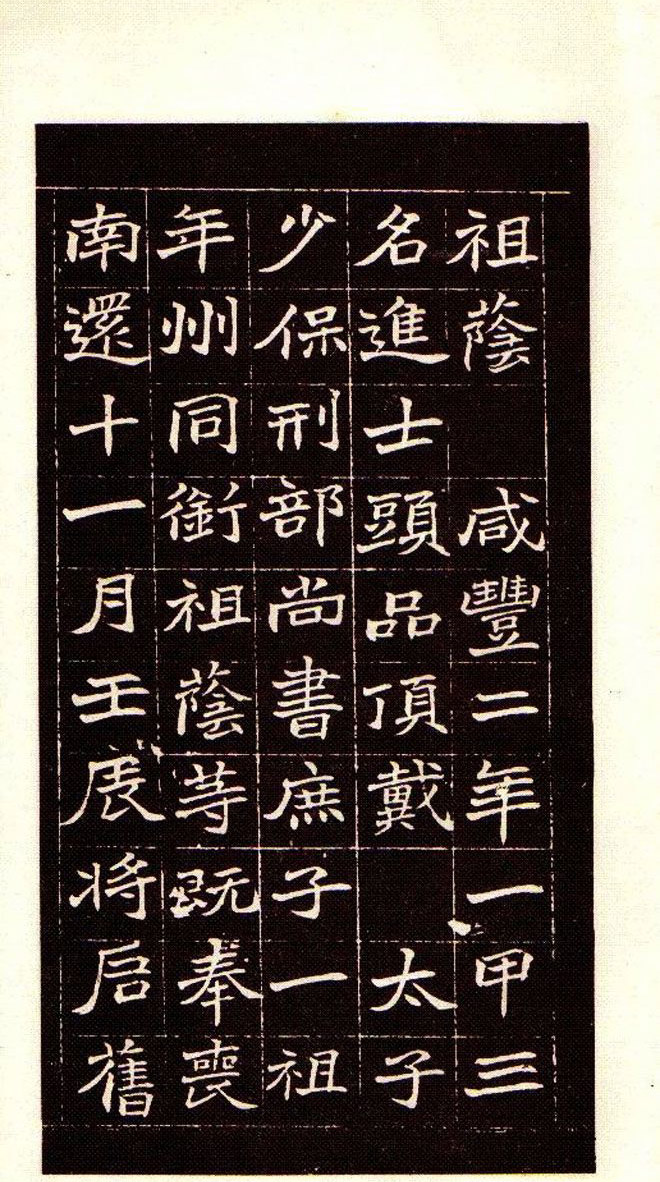 祖蔭　咸豐二年一甲三
名進士頭品頂戴　太子
少保刑部尚書庶子一祖
年州同銜祖蔭等既奉喪
南還十一月壬辰将启舊